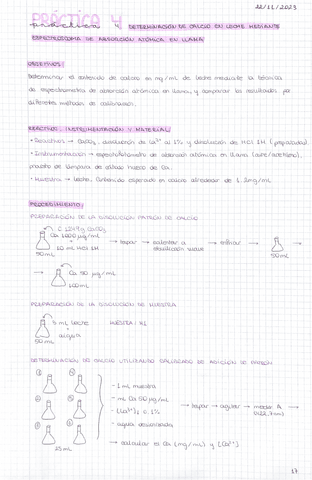 22/11/2023
PRÁCTICA 4
práctica 4. DETERMINACIÓN DE CALCIO EN LECHE MEDIANTE
ESPECTROSCOPÍA DE ABSORCIÓN ATÓMICA EN LLAMA
OBJETIVOS:
Determinar el contenido de calcio en mg/mL de leche mediante la técnica
de espectrometría de absorción atómica en llama, y comparar los resultados por
diferentes métodos de calibración.
REACTIVOS, INSTRUMENTACIÓN Y MATERIAL:
• Reactivos → CaCO₃, disolución de al 1% y disolución de HCl 1M (preparadas).
• Instrumentación → espectrofotómetro de absorción atómica en llama (aire/acetileno),
provisto de lámpara de cátodo hueco de Ca.
• Muestra → leche. Contenido esperado en calcio alrededor de 1.2mg/mL
PROCEDIMIENTO:
PREPARACIÓN DE LA DISOLUCIÓN PATRÓN DE CALCIO
CaCO₃
Ca 1000 µg/mL
10 mL HCl 1M
→ tapar → calentar a ebullición suave → enfriar →
50mL
50mL
→ Ca 50 µg/mL
100mL
PREPARACIÓN DE LA DISOLUCIÓN DE MUESTRA
5 mL leche MUESTRA
agua
50mL
DETERMINACIÓN DE CALCIO UTILIZANDO CALIBRADO DE ADICIÓN DE PATRÓN
- 1 mL muestra
- mL Ca 50 µg/mL
1%
- agua desionizada
→ tapar → agitar → medir A
(422,7nm)
→ calcular Ca (mg/mL) y
25 mL
17